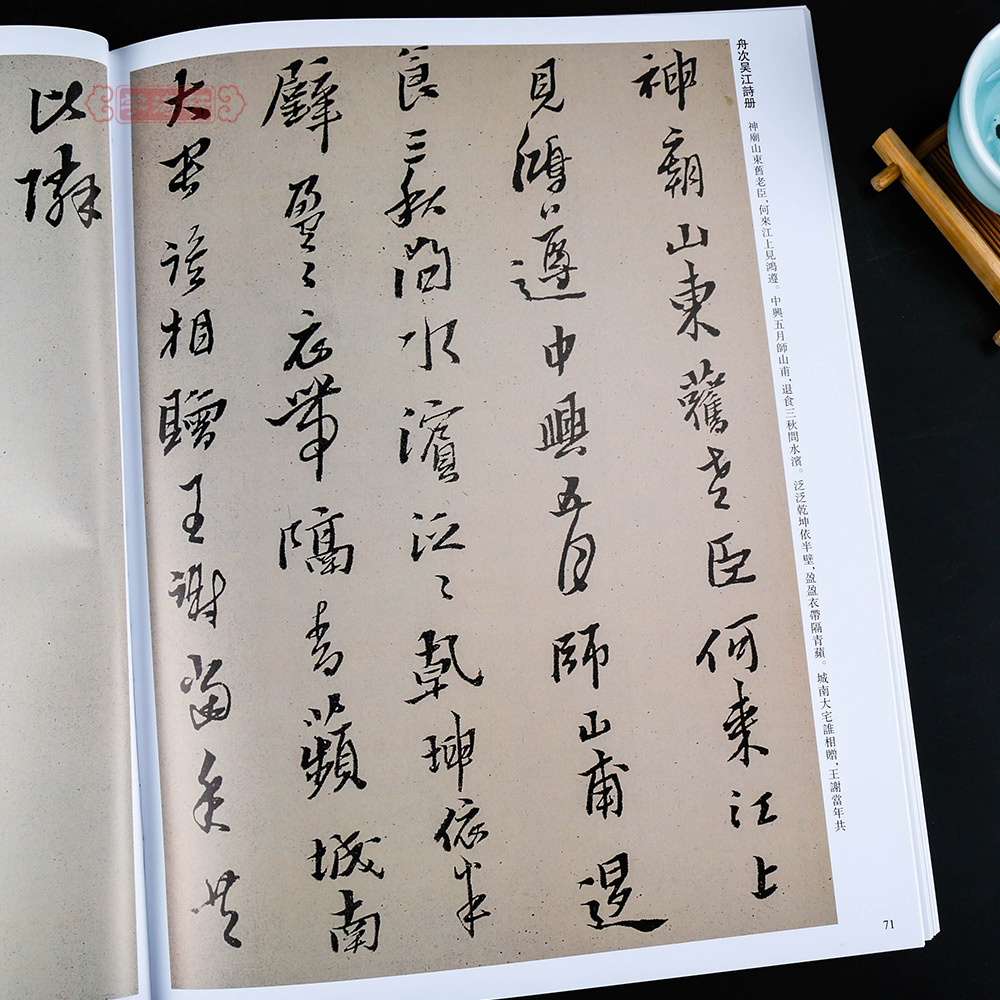 舟次吴江詩册
神廟山東舊老臣，何來江上見鴻遵。中興五月師山甫，退食三秋問水濱。泛泛乾坤依半壁，盈盈衣帶隔青蘋。城南大宅誰相贈，王謝當年共
神廟山東舊老臣何來江上
見鴻遵中興五月師山甫退
食三秋問水濱泛〻乾坤依半
壁盈〻衣帶隔青蘋城南
大宅誰相贈王謝當年共
比隣
71